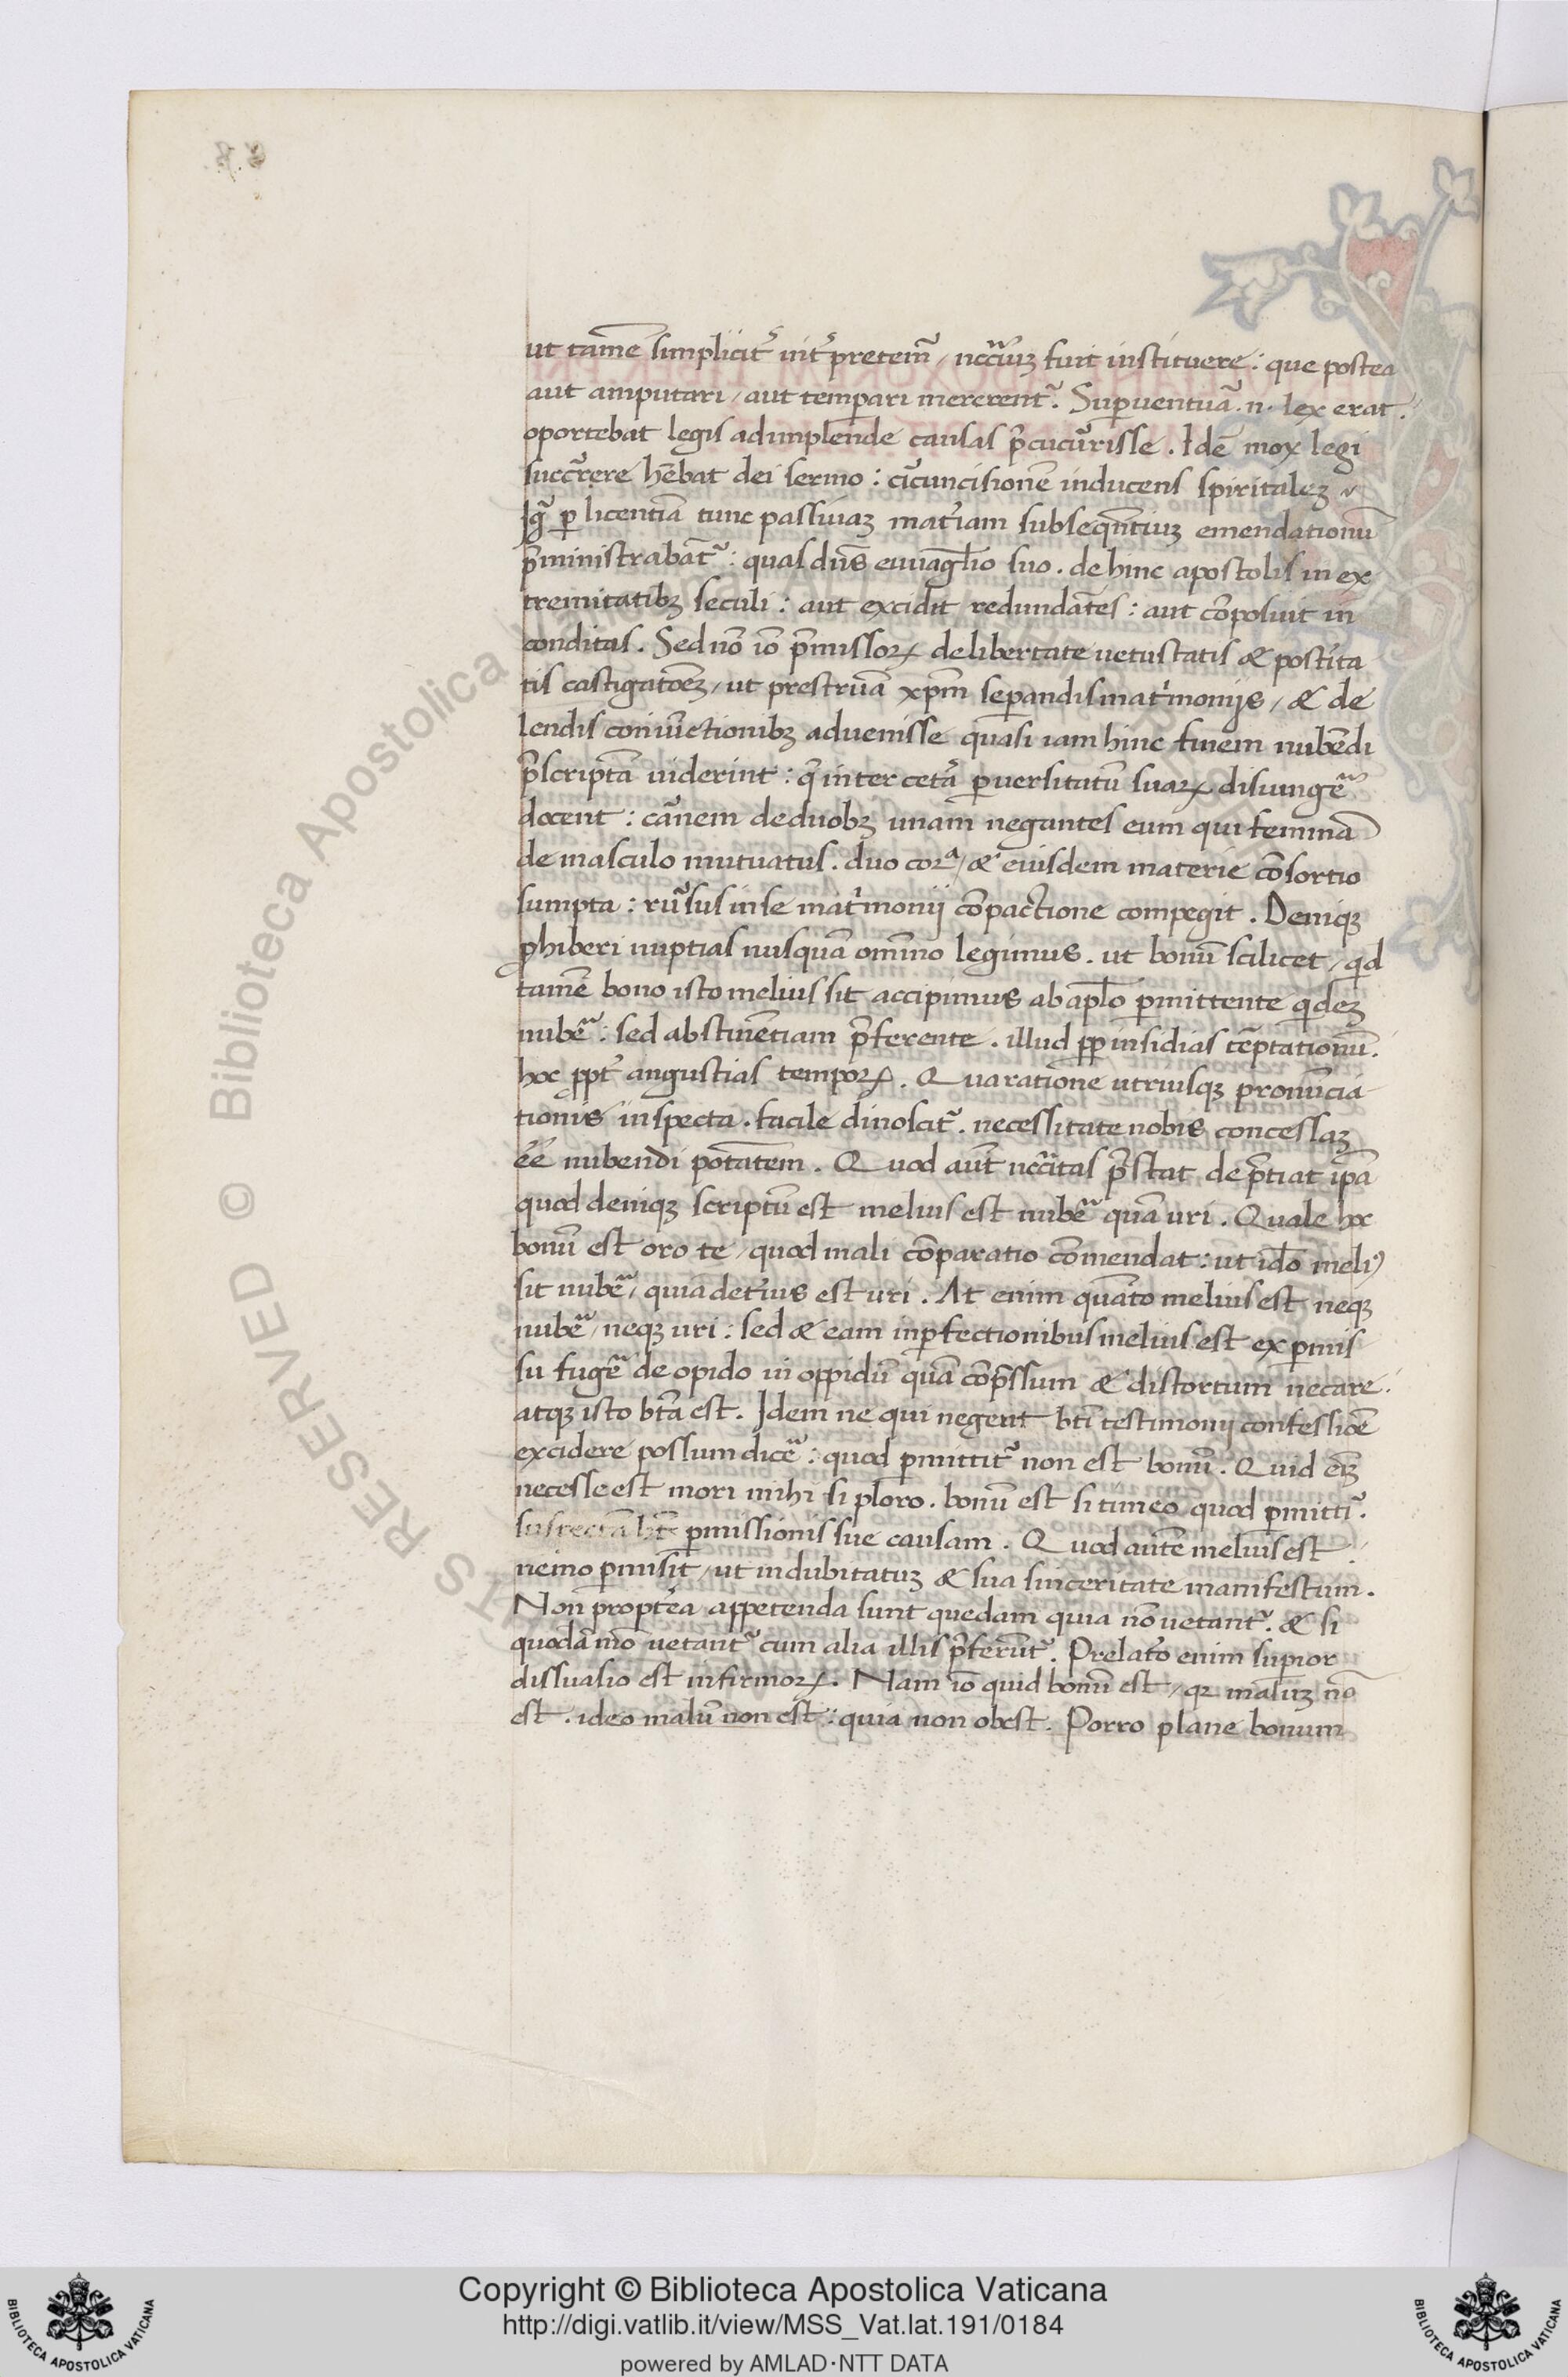 ut tamē simplicit᷒ int᷒pretem̃ / nc̃cãiuꝫ fuit instituere : que postea
aut amputari / aut temꝑari mererent᷒. Suꝑuentuã .n. lex erat .
oportebat legis adimplende causas p̃cucũrisse . Idē mox legi
succũrere hēbat dei sermo : cĩcuncisionē inducens spiritaleꝫ
Ig̃ ꝑ licentiā tunc passiuaꝫ mat̃iam subseqñtiuꝫ emendationū
p̃ministrabãt᷒ : quas dñs euuãgl̃io suo . de hinc apostolis in ex
tremitatibꝫ seculi : aut excidit redundãtes : aut cōposuit in
conditas . Sed nō iō p̃missoꝝ de libertate uetustatis & post̃ita
tis castigatōeꝫ / ut prestruā xp̃m seꝑandis mat̃monijs / & de
lendis coniūctionibꝫ aduenisse quasi iam hinc finem nubēdi
p̃scriptā uiderint : q̃ inter cetã ꝑuersitatū suaꝝ disiungẽ
docent : cãnem de duobꝫ unam negantes eum qui feminā
de masculo mutuatus . duo corᵃ / & eiusdem materie cōsortio
sumpta : rũsus in se mat̃monij cōpactione compegit . Deniqꝫ
ꝓhiberi nuptias nusquā omīno legimus . ut bonū scilicet / qd
tamē bono isto melius sit accipimus ab apl̃o ꝑmittente qdeꝫ
nubẽ : sed abstinētiam p̃ferente . illud ꝓp insidias tēptationū .
hoc ꝓpt᷒ angustias tempoꝝ . Qua ratione utriusqꝫ pronūcia
tionis inspecta . facile dinoscit᷒ . necessitate nobis concessaꝫ
éé nubendi potatem̃ . Quod aūt nc̃citas p̃stat de p̃tiat ip̃a
quod deniqꝫ scriptū est melius est nubẽ quā uri . Quale hoc
bonū est oro te / quod mali cōparatio cōmendat : ut idō meliꝰ
sit nubẽ / quia det̃ius est uri . At enim quāto melius est neqꝫ
nubẽ / neqꝫ uri : sed & eam inꝑfectionibus melius est ex ꝑmis
su fugẽ de opido in oppidū quā cōp̃ssum & distortum necare .
atqꝫ isto bt̃a est . Idem ne qui negent bt̃i testimonij confessiōe
excidere possum dicẽ : quod ꝑmittit᷒ non est bonū . Quid eīꝫ
necesse est mori mihi si ploro . bonū est si timeo quod ꝑmittĩ .
suspectā ht̃ ꝑmissionis sue causam . Quod autē melius est
nemo ꝑmisit / ut indubitatuꝫ & sua sinceritate manifestum .
Non propt̃ea appetenda sunt quedam quia nō uetant᷒ . & si
quodā mō uetant᷒ cum alia illis p̃ferūt᷒ . Prelat̃o enim suꝑior
dissuasio est infirmoꝝ . Nam iō quid bonū est / qꝛ maluꝫ nō
est . ideo malū non est : quia non obest . Porro plane bonum
Biblioteca Apostolica
© RESERVED
Copyright © Biblioteca Apostolica Vaticana
http://digi.vatlib.it/view/MSS_Vat.lat.191/0184
powered by AMLAD·NTT DATA
BIBLIOTECA APOSTOLICA VATICANA
BIBLIOTECA APOSTOLICA VATICANA